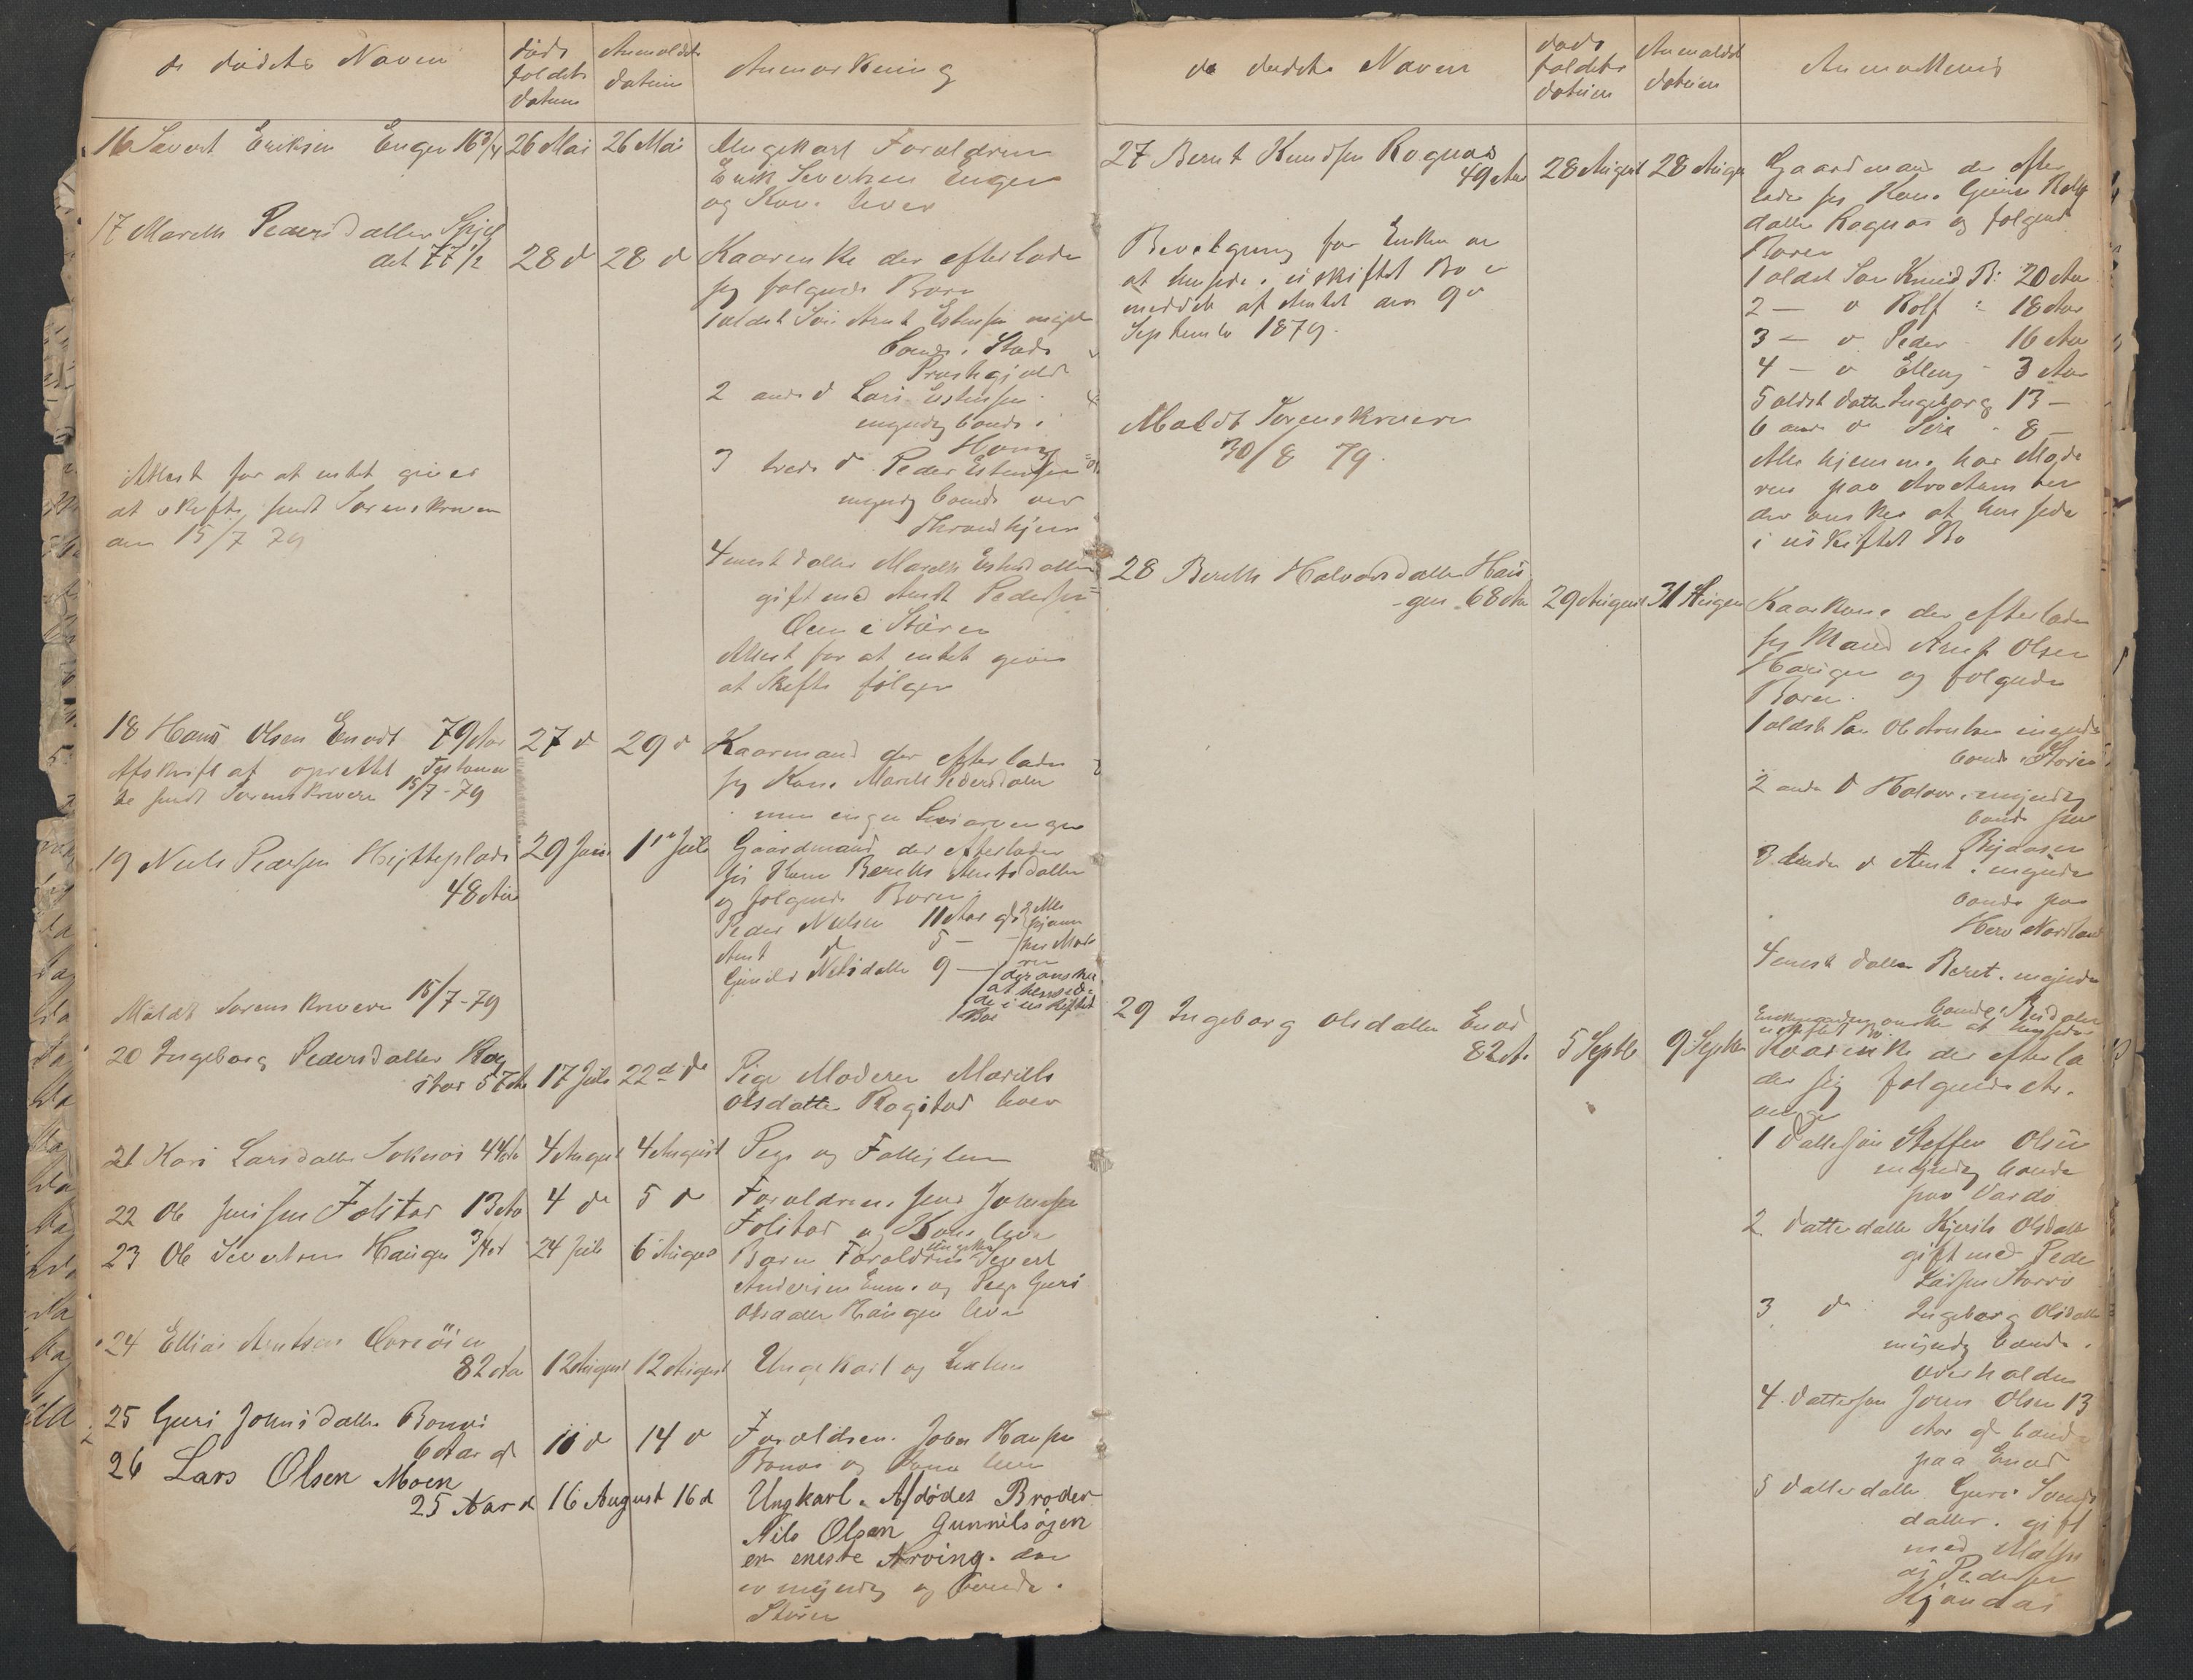 de dødets Navn
døds
faldets
datum
Anmeldt
datum
Anmærkning
16 Severt Eriksen Engen 16 3/4
26 Mai
26 Mai
Ungekarl Foraldren
Erik Sevrtsen Engen
og Kone lever
17 Mareth Pedersdatter Spjel
det 77 1/2
28 d
28 d
Kaarenke der efterlader
sig følgende Børn
1 aldst Søn Arnt Estensen myndig
boende i Stods
Prestegjeld
2 anden d Lars Estensen
myndig boende i
3 tredie d Peder Estensen
myndig boende ved
Throndhjem
4 enest datter Mareth Estensdatter
gift med Arndt Pedersen
Oien i Støren
Attest for at intet gives
at skifte følger
Attest for at intet gives
at skifte sendt Sorenskriveren
den 15/7 79
18 Hans Olsen Enodt 79 Aar
27 d
29 d
Afskrift af oprettet Testamen
te sendt Sorenskriveren 15/7-79
Kaarmand der efterlader
sig Kone Mareth Pedersdatter
men ingen Livsarvinger
19 Niels Pedersen Hytteplads
48 Aar
29 Juni
1ste Juli
Gaardmand der efterlader
sig Kone Bereth Arntsdatter
og følgende Børn
Peder Nielsen 11 Aar gl
Arnt d 5 -
Gunild Nelsdatter 9 -
Alle
hjemme
hos Mode
ren
der ønsker
at hensid
de i uskiftet
Bo
Meldt Sorenskriveren 15/7-79
20 Ingeborg Pedersdatter Rog
stad 57 Aar
17 Juli
22de do
Pige Moderen Mareth
Olsdatter Rogstad lever
21 Kari Larsdatter Soknes 44 Aar
4 August
4 August
Pige og Fattiglem
22 Ole Jensen Folstad 13 Aar
4 do
5 d
Foraldrene Jens Johnsen
Folstad og Kone lever
23 Ole Severtsen Haugen 3/4 d
24 Juli
6 August
Barn Foraldrene Ungekarl Severt
Andersen Enm. og Pige Guri
Olsdatter Haugen lever
24 Ellias Arntsen
82 Aar
12 August
12 August
Ungekarl og
25 Guri Johnsdatter Bonæs
6 Aar gl
11 d
14 d
Foraldrene John Hansen
Bonæs og Kone lever
26 Lars Olsen Moen
25 Aar d
16 August
16 d
Ungkarl. Afdødes Broder
Nils Olsen Gunnilsøyen
er eneste Arving. der
er myndig og boende.
Støren
de dødets Navn
døds
faldets
datum
Anmeldt
datum
Anmærkning
27 Bernt Knudsen Rognæs
49 Aar
28 August
28 August
Gaardmand der efter
lader sig Kone Guru Rolfs
datter Rognæs og følgende
Børn
1 aldst Søn Knud B: 20 Aar
2 - d Rolf " 18 Aar
3 - d Peder - 16 Aar
4 - d Elling - 3 Aar
5 aldst datter Ingeborg 13 -
6 anden d Siri - 8 -
Alle hjemme hos Mode
ren paa
der ønsker at hensidde
i uskiftet Bo
Bevilgning for Enken om
at hensidde i uskiftet Bo er
meddelt af Amtet den 9de
September 1879.
Meldt Sorenskriveren
30/8 79.
28 Bereth Halvorsdatter Hau
gen 68 Aar
29 August
31 August
Kaarkone der efterlader
sig Mand Arnt Olsen
Haugen og følgende
Børn.
1 aldste Søn Ole Arntsen myndig
boende i Støren
2 anden d Halvor, myndig
boende paa
3 tredie d Arnt, myndig
boende paa
Herø Nordland
4 eneste datter Beret. myndig
boende i
Enkemanden ønsker at hensidde
uskiftet Bo
29 Ingeborg Olsdatter Enod
82 Ar
5 Septbr
9 Septbr
Kaarenke der efterla
der sig følgende Ar
vinger
1 Dattersøn Steffen Olsen
myndig boende
paa Vardø
2 datterdatter Kjersti Olsdatter
gift med Peder
Larsen Norvo
3 do Ingeborg Olsdatter
myndig boende i
Overhalden
4 dattersøn Jons Olsen 13
Aar gl boende
paa Enod
5 datterdatter Guri Svends
datter. gift
med
Pedersen
Kjondal